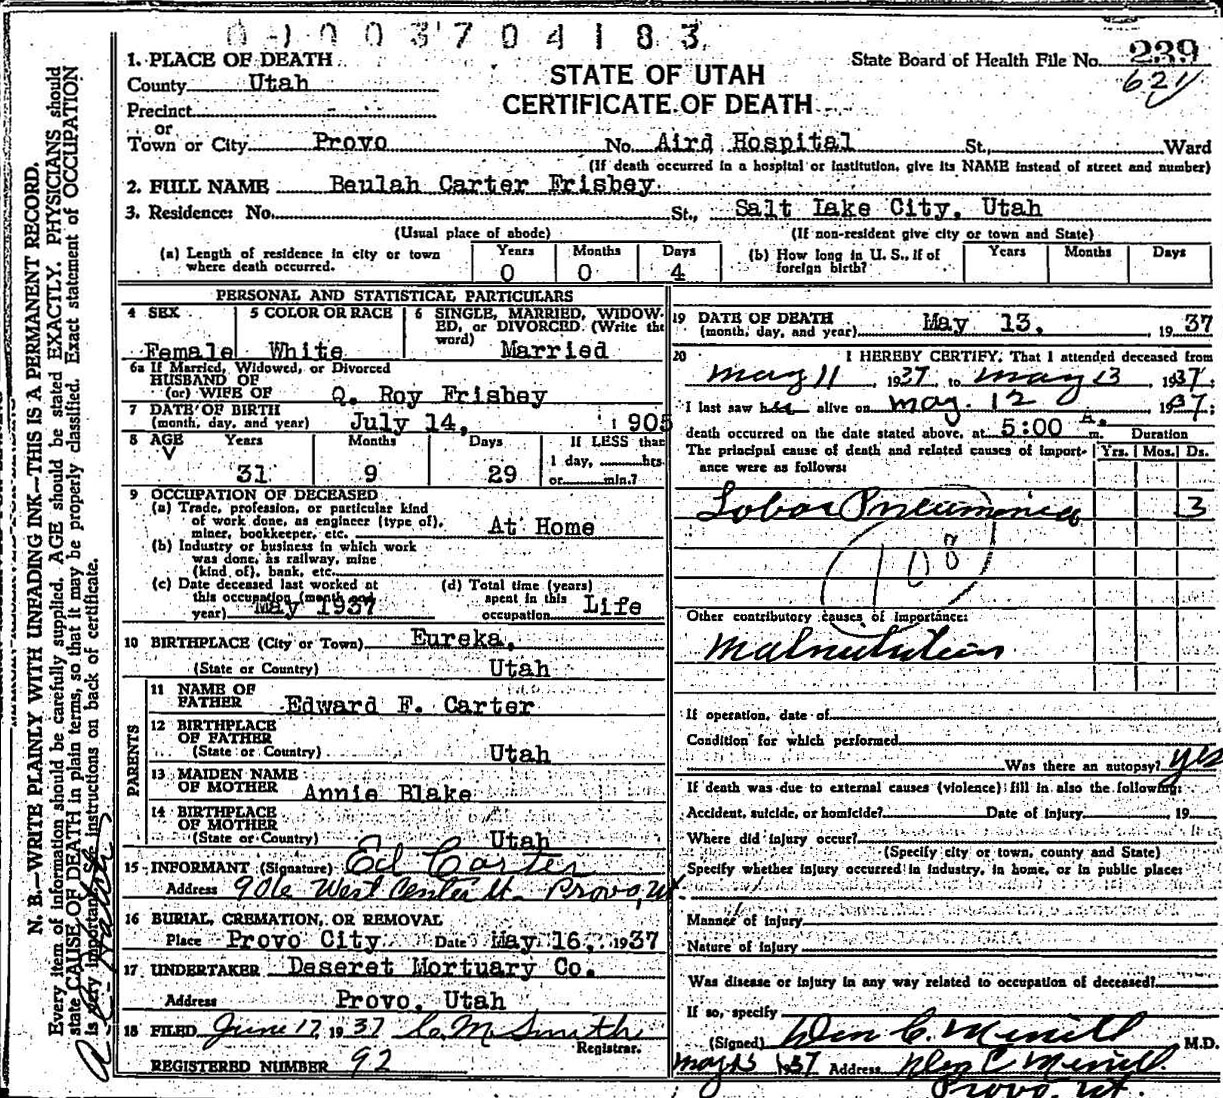 0-1003704183
1. PLACE OF DEATH
County Utah
Precinct
or
Town or City Provo No. Aird Hospital St., Ward
STATE OF UTAH
CERTIFICATE OF DEATH
State Board of Health File No. 239
621
(If death occurred in a hospital or institution, give its NAME instead of street and number)
2. FULL NAME Beulah Carter Frisbey
3. Residence: No. St., Salt Lake City, Utah
(Usual place of abode) (If non-resident give city or town and State)
(a) Length of residence in city or town where death occurred. Years 0 Months 0 Days 4
(b) How long in U. S., if of foreign birth? Years Months Days
PERSONAL AND STATISTICAL PARTICULARS
4 SEX Female
5 COLOR OR RACE White
6 SINGLE, MARRIED, WIDOW-
ED, or DIVORCED. (Write the
word) Married
6a If Married, Widowed, or Divorced
HUSBAND OF
(or) WIFE OF Q. Roy Frisbey
7 DATE OF BIRTH
(month, day, and year) July 14, 1905
8 AGE Years 31 Months 9 Days 29
If LESS than
1 day, hrs.
or min.?
9 OCCUPATION OF DECEASED
(a) Trade, profession, or particular kind
of work done, as engineer (type of),
miner, bookkeeper, etc. At Home
(b) Industry or business in which work
was done, as railway, mine
(kind of), bank, etc.
(c) Date deceased last worked at
this occupation (month and
year) May 1937
(d) Total time (years)
spent in this
occupation Life
10 BIRTHPLACE (City or Town) Eureka,
(State or Country) Utah
PARENTS
11 NAME OF
FATHER Edward F. Carter
12 BIRTHPLACE
OF FATHER
(State or Country) Utah
13 MAIDEN NAME
OF MOTHER Annie Blake
14 BIRTHPLACE
OF MOTHER
(State or Country) Utah
15 INFORMANT (Signature) Ed Carter
Address 906 West Center St. Provo, Ut.
16 BURIAL, CREMATION, OR REMOVAL
Place Provo City Date May 16, 1937
17 UNDERTAKER Deseret Mortuary Co.
Address Provo, Utah
18 FILED June 17, 1937 C. M. Smith
Registrar.
REGISTERED NUMBER 92
19 DATE OF DEATH
(month, day, and year) May 13, 1937
20 I HEREBY CERTIFY, That I attended deceased from
May 11, 1937, to May 13, 1937;
I last saw her alive on May 12, 1937;
death occurred on the date stated above, at 5:00 A. m. Duration
The principal cause of death and related causes of import-
ance were as follows: Yrs. Mos. Ds.
Lobar Pneumonia 3
108
Other contributory causes of importance:
Malnutrition
If operation, date of
Condition for which performed
Was there an autopsy? yes
If death was due to external causes (violence) fill in also the following:
Accident, suicide, or homicide? Date of injury 19
Where did injury occur?
(Specify city or town, county and State)
Specify whether injury occurred in industry, in home, or in public place:
Manner of injury
Nature of injury
Was disease or injury in any way related to occupation of deceased?
If so, specify
(Signed) Wm C. Merrill M.D.
May 15 1937 Address Wm C Merrill
Provo, Ut.
N. B.—WRITE PLAINLY WITH UNFADING INK—THIS IS A PERMANENT RECORD.
Every item of information should be carefully supplied. AGE should be stated EXACTLY. PHYSICIANS should
state CAUSE OF DEATH in plain terms, so that it may be properly classified. Exact statement of OCCUPATION
is very important. See instructions on back of certificate.